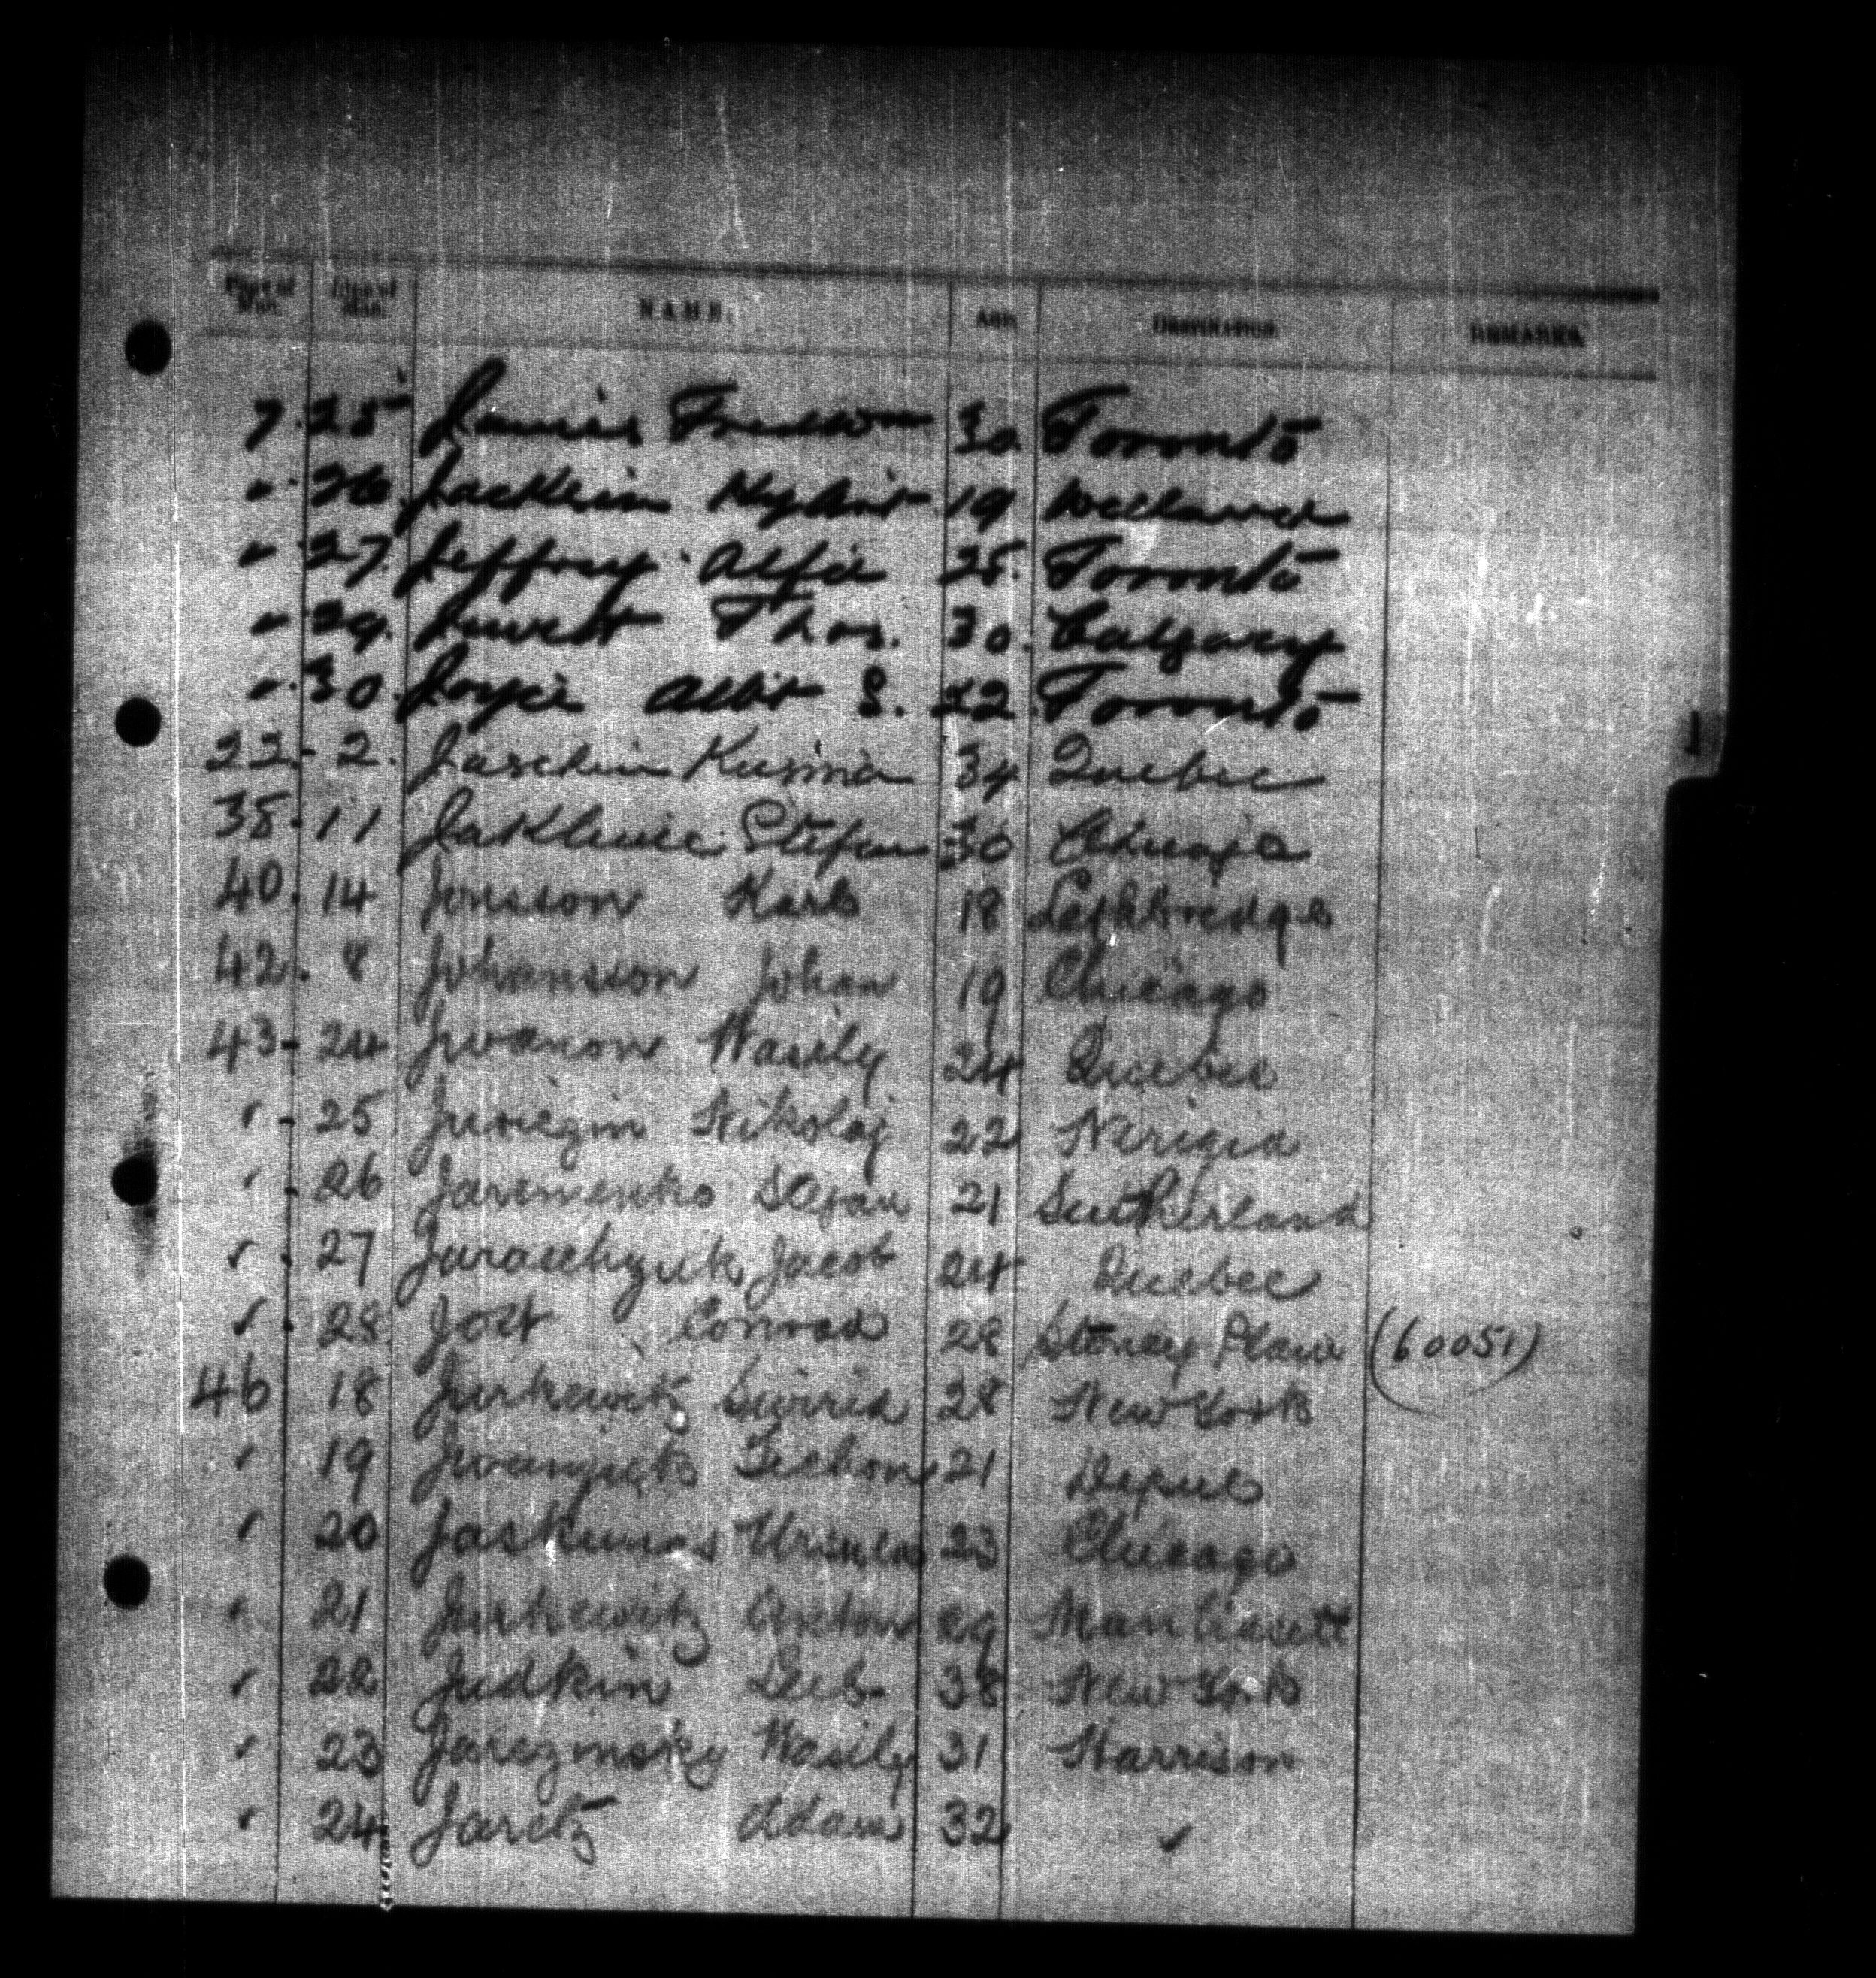 Page of Man. Line of Man. NAME. Age. Destination REMARKS.
7. 25 30 Toronto
" 26 Jacklin 19 Welland
" 27. Jeffrey Alfd 25. Toronto
" 29. Jewett Thos. 30. Calgary
" 30. Joyce Albt S. 22 Toronto
22 - 2. Jaschin Kusma 34 Quebec
38. 11 Stefan 30
40. 14 Jonsson Karl 18 Lethbredge
42. 8 Johansson Johan 19 Chicago
43 - 24 Jwanow Wasily 24 Quebec
" - 25 Nikolaj 22
" . 26 Jaremenko Stepan 21 Sutherland
" . 27 Jacob 24 Quebec
" . 28. Jost Conrad 28 Stoney Plain (60051)
46 18 Jurkewitz 28 New York
" 19 21
" 20 Jaskunas Ursula 23 Chicago
" 21 Jurkewitz Anton 29
" 22 Judkin Leib 38 New York
" 23 Jarezinsky Wasily 31 Harrison
" 24 Jaretz Adam 32 "